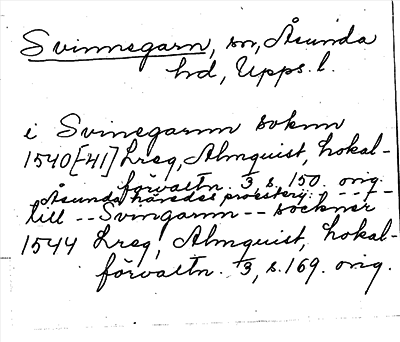 Svinnegarn, sn, Åsunda
hd, Upps. l.
i Svinegarnn soknn
1540[-41] Lreg, Almquist, Lokal-
förvaltn. 1/3, s. 150. orig.
Åsunda häredes prosterij:
till -- Svingarnn -- sockner
1544 Lreg, Almquist, Lokal-
förvaltn. 1/3, s. 169. orig.